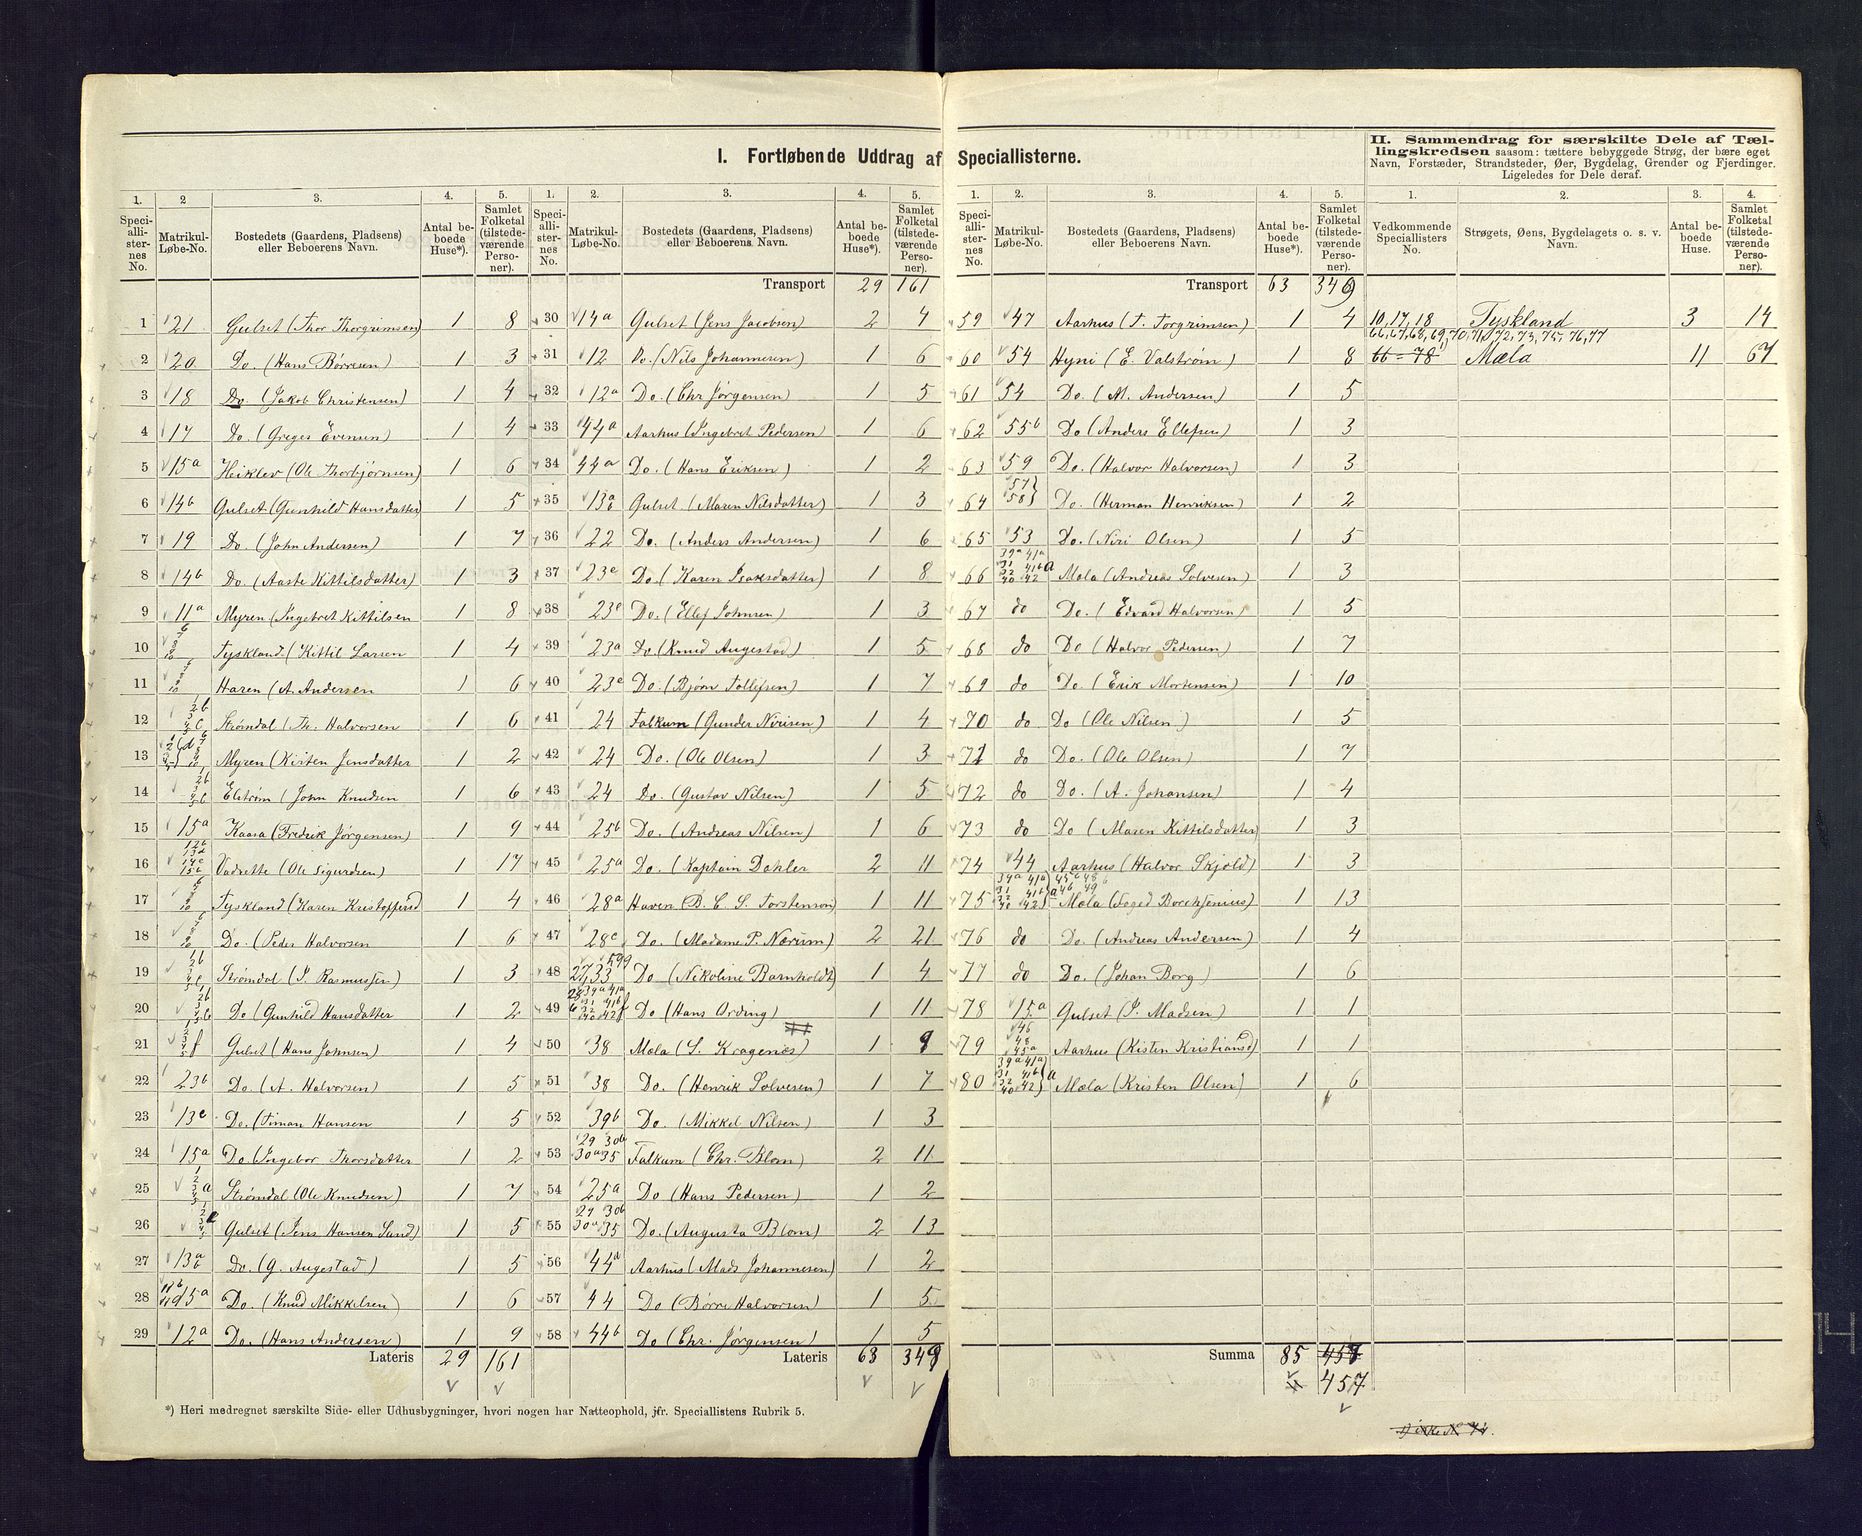 I. Fortløbende Uddrag af Speciallisterne.
II. Sammendrag for særskilte Dele af Tæl-
lingskredsen saasom: tættere bebyggede Strøg, der bære eget
Navn, Forstæder, Strandsteder, Øer, Bygdelag, Grender og Fjerdinger.
Ligeledes for Dele deraf.
1. 2 3. 4. 5.
Speci-alli-ster-nes No. Matrikul-Løbe-No. Bostedets (Gaardens, Pladsens) eller Beboerens Navn. Antal be-boede Huse*). Samlet Folketal (tilstede-værende Perso-ner).
1 21 Gulset (Thor Thorgrimsen) 1 8
2 20 Do. (Hans Børresen) 1 3
3 18 Do. (Jakob Christensen) 1 4
4 17 Do. (Greges Evensen) 1 4
5 15a Heiklev (Ole Thorbjørnsen) 1 6
6 14b Gulset (Gunhild Hansdatter) 1 5
7 19 Do. (John Andersen) 1 7
8 14b Do. (Aaste Kittilsdatter) 1 3
9 11a Myren (Ingebret Kittilsen 1 8
10 Tyskland (Kittil Larsen 1 4
11 Haren (A. Andersen 1 6
12 Strømdal (Th. Halvorsen 1 6
13 Myren (Kirsten Jensdatter 1 2
14 Elstrøm (John Knudsen 1 6
15 15a Kaasa (Fredrik Jørgensen) 1 9
16 Vadrette (Ole Sigurdsen) 1 17
17 Tyskland (Karen Kristoffersd 1 4
18 Do. (Peder Halvorsen 1 6
19 Strømdal (I. Rasmussen) 1 3
20 Do (Gunhild Hansdatter 1 2
21 Gulset (Hans Johnsen) 1 4
22 23b Do. (A. Halvorsen) 1 5
23 13e Do. (Simon Hansen 1 5
24 15a Do. (Ingebor Thorsdatter 1 2
25 Strømdal (Ole Knudsen) 1 7
26 Gulset (Jens Hansen Sand) 1 5
27 13a b Do. (G. Augestad) 1 5
28 Do. (Knud Mikkelsen) 1 6
29 12a Do. (Hans Andersen) 1 9
Lateris 29 161
*) Heri medregnet særskilte Side- eller Udhusbygninger, hvori nogen har Natteophold, jfr. Speciallistens Rubrik 5.
1. 2. 3. 4. 5.
Speci-alli-ster-nes No. Matrikul-Løbe-No. Bostedets (Gaardens, Pladsens) eller Beboerens Navn. Antal be-boede Huse*). Samlet Folketal (tilstede-værende Perso-ner).
Transport 29 161
30 14a Gulset (Jens Jacobsen) 2 4
31 12 Do. (Nils Johannesen) 1 6
32 12a Do. (Chr Jørgensen) 1 5
33 44a Aarhus (Ingebret Pedersen) 1 6
34 44a Do. (Hans Eriksen) 1 2
35 13a b Gulset (Maren Nilsdatter) 1 3
36 22 Do. (Anders Andersen) 1 6
37 23e Do. (Karen Isaksdatter) 1 8
38 23e Do. (Ellef Johnsen) 1 3
39 23a Do (Knud Augestad) 1 5
40 23e Do. (Bjørn Tollefsen) 1 7
41 24 Falkum (Gunder Nirisen) 1 4
42 24 Do. (Ole Olsen) 1 3
43 24 Do. (Gustav Nilsen) 1 5
44 25b Do. (Andreas Nilsen) 1 6
45 25a Do. (Kaptain Dahler 2 11
46 28a Haven B. C. S. Torstenson 1 11
47 28c Do. (Madame P. Nærum) 2 21
48 27, 33 Do (Nikoline Barnholdt) 1 4
49 Do (Hans Ording) 1 11
50 38 Mæla (S. Kragenes) 1 9
51 38 Do. (Henrik Solvesen) 1 7
52 39b Do. (Mikkel Nilsen) 1 3
53 29 30b 30a 35 Falkum (Chr. Blom) 2 11
54 25a Do (Hans Pedersen) 1 2
55 29 30b 30a 35 Do. (Augusta Blom) 2 13
56 44d Aarhus (Mads Johannesen) 1 2
57 44 Do (Børre Halvorsen) 1 5
58 44b Do (Chr. Jørgensen) 1 5
Lateris 63 349
1. 2. 3. 4. 5.
Speci-alli-ster-nes No. Matrikul-Løbe-No. Bostedets (Gaardens, Pladsens) eller Beboerens Navn. Antal be-boede Huse*). Samlet Folketal (tilstede-værende Perso-ner).
Transport 63 349
59 47 Aarhus (T. Torgrimsen) 1 4
60 54 Hyni (E. Valstrøm) 1 8
61 54 Do. (M. Andersen) 1 5
62 55b Do (Anders Ellefsen) 1 3
63 59 Do. (Halvor Halvorsen) 1 3
64 57 58 Do. (Herman Henriksen) 1 2
65 53 Do. (Niri Olsen) 1 5
66 39a 41a 31 41b 32 40 42 a Mæla (Andreas Solvesen) 1 3
67 do Do. (Edvard Halvorsen) 1 5
68 do Do (Halvor Pedersen) 1 7
69 do Do. (Erik Mortensen) 1 10
70 do Do (Ole Nilsen) 1 5
71 do Do. (Ole Olsen) 1 7
72 do Do. (A. Johansen) 1 4
73 do Do (Maren Kittilsdatter) 1 3
74 44 Aarhus (Halvor Skjold) 1 3
75 Mæla (Foged Borchsenius) 1 13
76 do Do. (Andreas Andersen) 1 4
77 do Do. (Johan Borg) 1 6
78 15a Gulset (I. Madsen) 1 1
79 46 48 45a Aarhus (Kisten Kristiansd) 1 1
80 39a 41a 31 41b 32 40 42 a Mæla (Kristen Olsen) 1 6
Summa 85 458
457
1. 2. 3. 4.
Vedkommende Speciallisters No. Strøgets, Øens, Bygdelagets o. s. v. Navn. Antal be-boede Huse. Samlet Folketal (tilstede-værende Personer).
10, 17, 18 Tyskland 3 14
66, 67, 68, 69, 70, 71, 72, 73, 75, 76, 77
66 = 78 Mæla 11 67